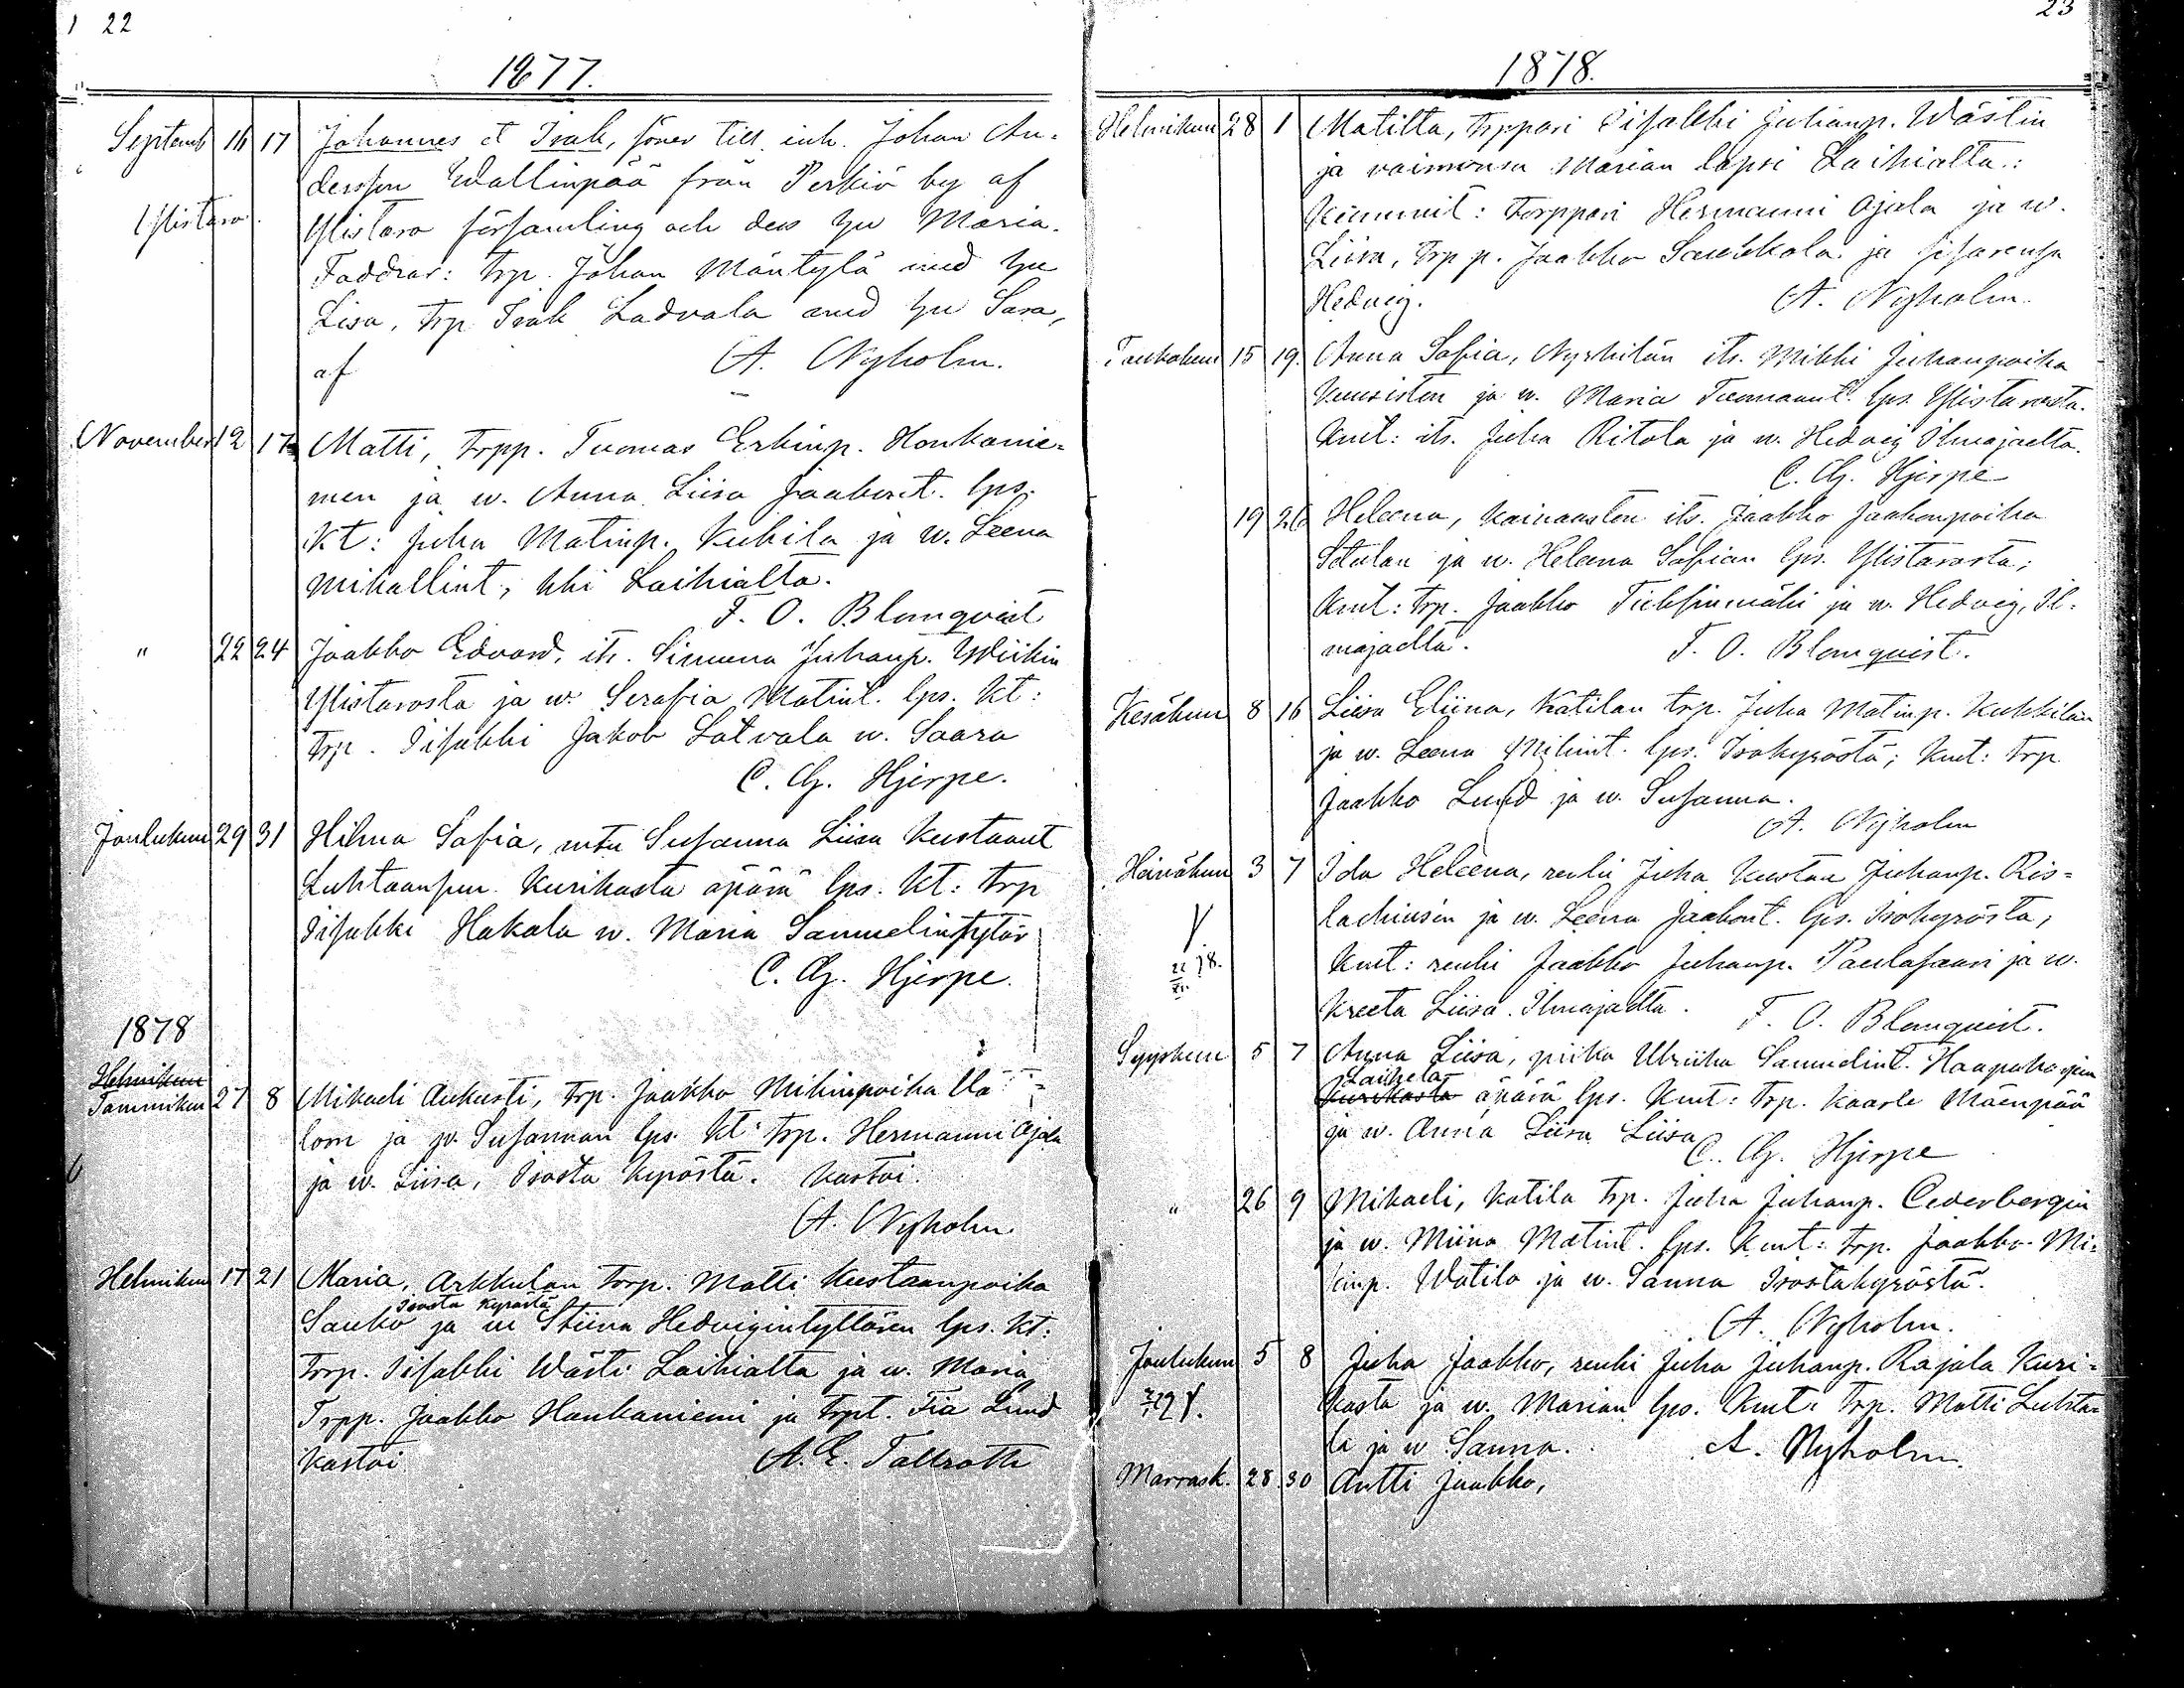 22
1877.
Septemb 16 17 Johannes et Isak, söner till inh. Johan An-
dersson Wallinpää från Perkiö by af
Ylistaro
Ylistaro församling och dess hu Maria.
Faddrar: trp. Johan Mäntylä med hu
Lisa, trp Isak Ladvala med hu Sara,
af A. Nyholm.
November 12 17 Matti, trpp. Tuomas Erkinp. Honkanie-
men ja w. Anna Liisa Jaakont. lps.
Kt: Juha Matinp. Kukila ja w. Leena
Mikallint, kki Laihialta.
F. O. Blomqvist
" 22 24 Jaakko Edvard, its. Simuna Juhanp. Wiikin
Ylistarosta ja w. Serafia Matint. lps. Kt:
trp. Iisakki Jakob Latvala w. Saara
C. G. Hjerpe.
Joulukuu 29 31 Hilma Sofia, Susanna Liisa Kustaant
Luhtaanpuu Kurikasta äpärä lps. Kt: trp
Iisakki Hakala w. Maria Samuelintytär
C. G. Hjerpe.
1878
Helmikuu
Tammikuu 27 8 Mikaeli Aukusti, trp. Jaakko Mikinpoika
lom ja w. Susannan lps. Kt: trp. Hermanni Ojala
ja w. Liisa, Isosta Kyröstä. Kastoi.
A. Nyholm
Helmikuu 17 21 Maria, Arkkulan torp. Matti Kustaanpoika
Isosta Kyröstä
Sauko ja w Stiina Hedvigintyttären lps. Kt:
torp. Iisakki Wästi Laihialta ja w. Maria,
Trpp. Jaakko Honkaniemi ja trpt. Fia Lund
Kastoi A. E. Tallroth
23
1878.
Helmikuu 28 1 Matilta, trppari Iisakki Juhanp. Wästin
ja vaimonsa Marian lapsi Laihialta:
Kummit: torppari Hermanni Ojala ja w.
Liisa, trp p. Jaakko Saukkola ja sisarensa
Hedvig. A. Nyholm.
Toukokuu 15 19. Anna Sofia, its. Mikki Juhanpoika
Kuusiston ja w. Maria Tuomaant. lps. Ylistarosta.
Kmt: its. Juha Ritola ja w. Hedvig Ilmajoelta.
C. G. Hjerpe
19 26 Heleena, Kainaaston its. Jaakko Jaakonpoika
ja w. Heleena Sofian lps. Ylistarosta;
Kmt: trp. Jaakko ja w. Hedvig, Il-
majoelta. F. O. Blomquist.
Kesäkuu 8 16 Liisa Eliina, Katilan trp. Juha Matinp. Kukkilan
ja w. Leena Mikint. lps. Isokyröstä; Kmt: trp
Jaakko Lund ja w. Susanna.
A. Nyholm
Heinäkuu 3 7 Ida Heleena, renki Juha Kustaa Juhanp. Ris-
lachiusen ja w. Leena Jaakont. lps. Isokyröstä,
Kmt: renki Jaakko Juhanp. Paulasaari ja w.
Kreeta Liisa. Ilmajoelta. F. O. Blomquist.
Syyskuu 5 7 Anna Liisa, piika Ulriika Samuelint. Haapakosken
Laihela
Kurikasta äpärä lps. Kmt: trp. Kaarle Mäenpää
ja w. Anna Liisa Liisa
C. G. Hjerpe
" 26 9 Mikaeli, Katila trp. Juha Juhanp. Cederbergin
ja w. Miina Matint. lps. Kmt: trp. Jaakko Mi-
kinp. Watila ja w. Sanna Isostakyröstä.
A. Nyholm.
Joulukuu 5 8 Juha Jaakko, renki Juha Juhanp. Rajala Kuri-
kasta ja w. Marian lps. Kmt: trp. Matti Luhta-
la ja w Sanna. A. Nyholm.
Marrask. 28 30 Antti Jaakko,